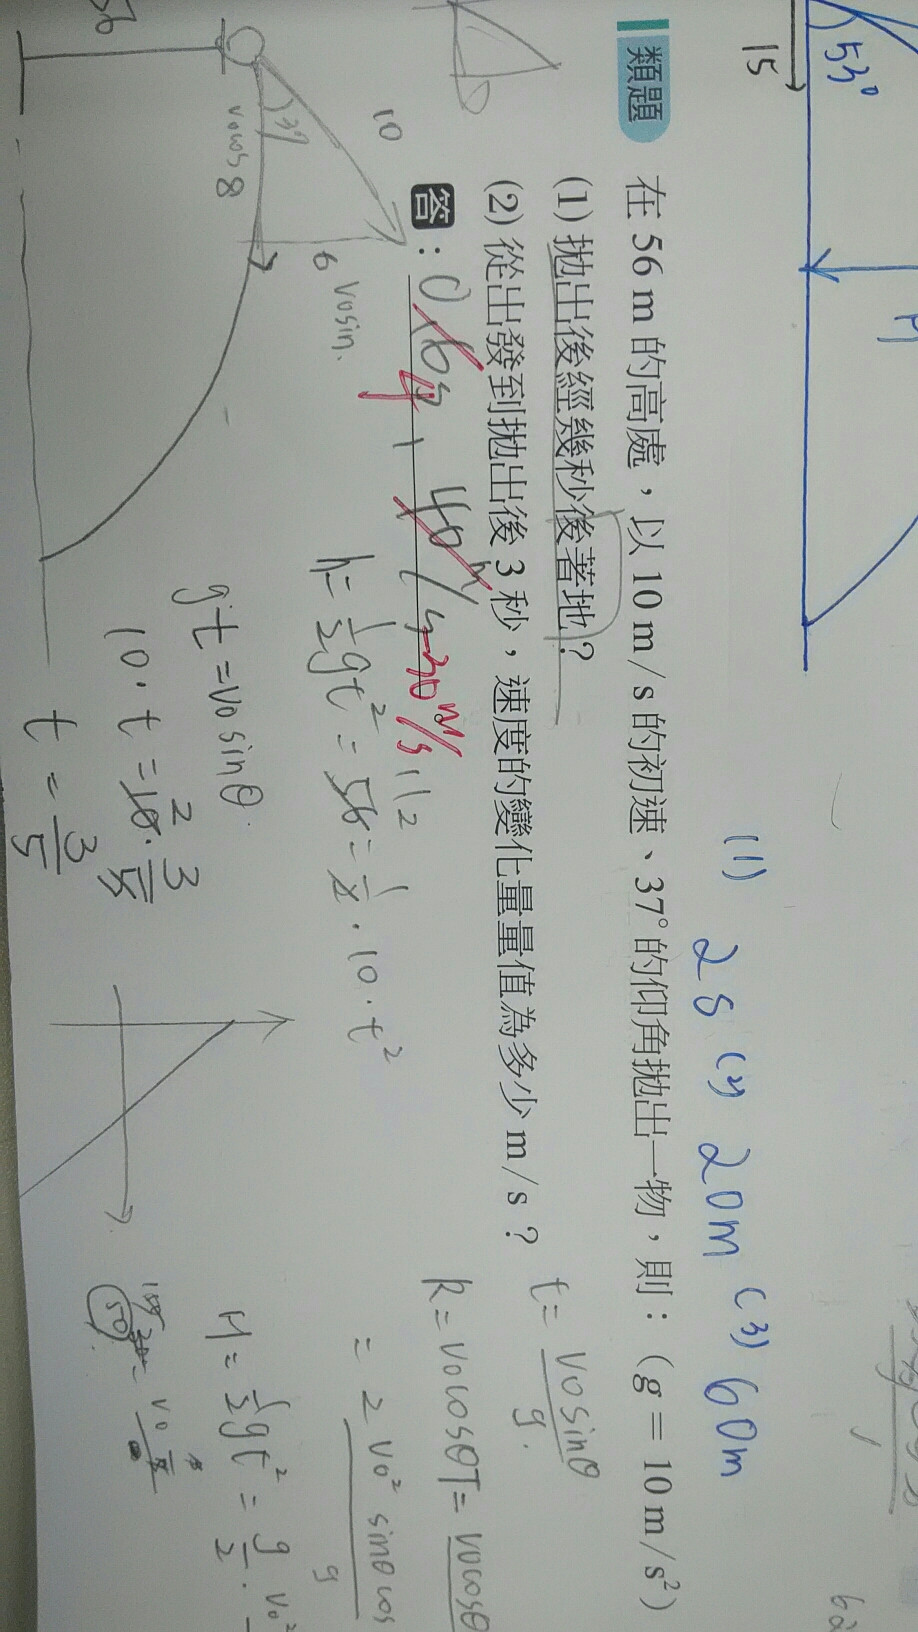 53°
15
(1) 2s (2) 20m (3) 60m
類題 在 56 m 的高處，以 10 m/s 的初速、37°的仰角拋出一物，則：(g = 10 m/s²)
(1) 拋出後經幾秒後著地？
(2) 從出發到拋出後 3 秒，速度的變化量量值為多少 m/s？
答：
4
30 m/s
56
10
37
v₀cos
8
6
v₀sin.
h = ½gt² = 56 = ½ · 10 · t²
gt = v₀sinθ.
10 · t = 10 · 3/5
t = 3/5
t = v₀sinθ/g.
R = v₀cosθT = v₀cosθ
= 2v₀² sinθcos/g
H = ½gt² = g/2 · v₀²
50